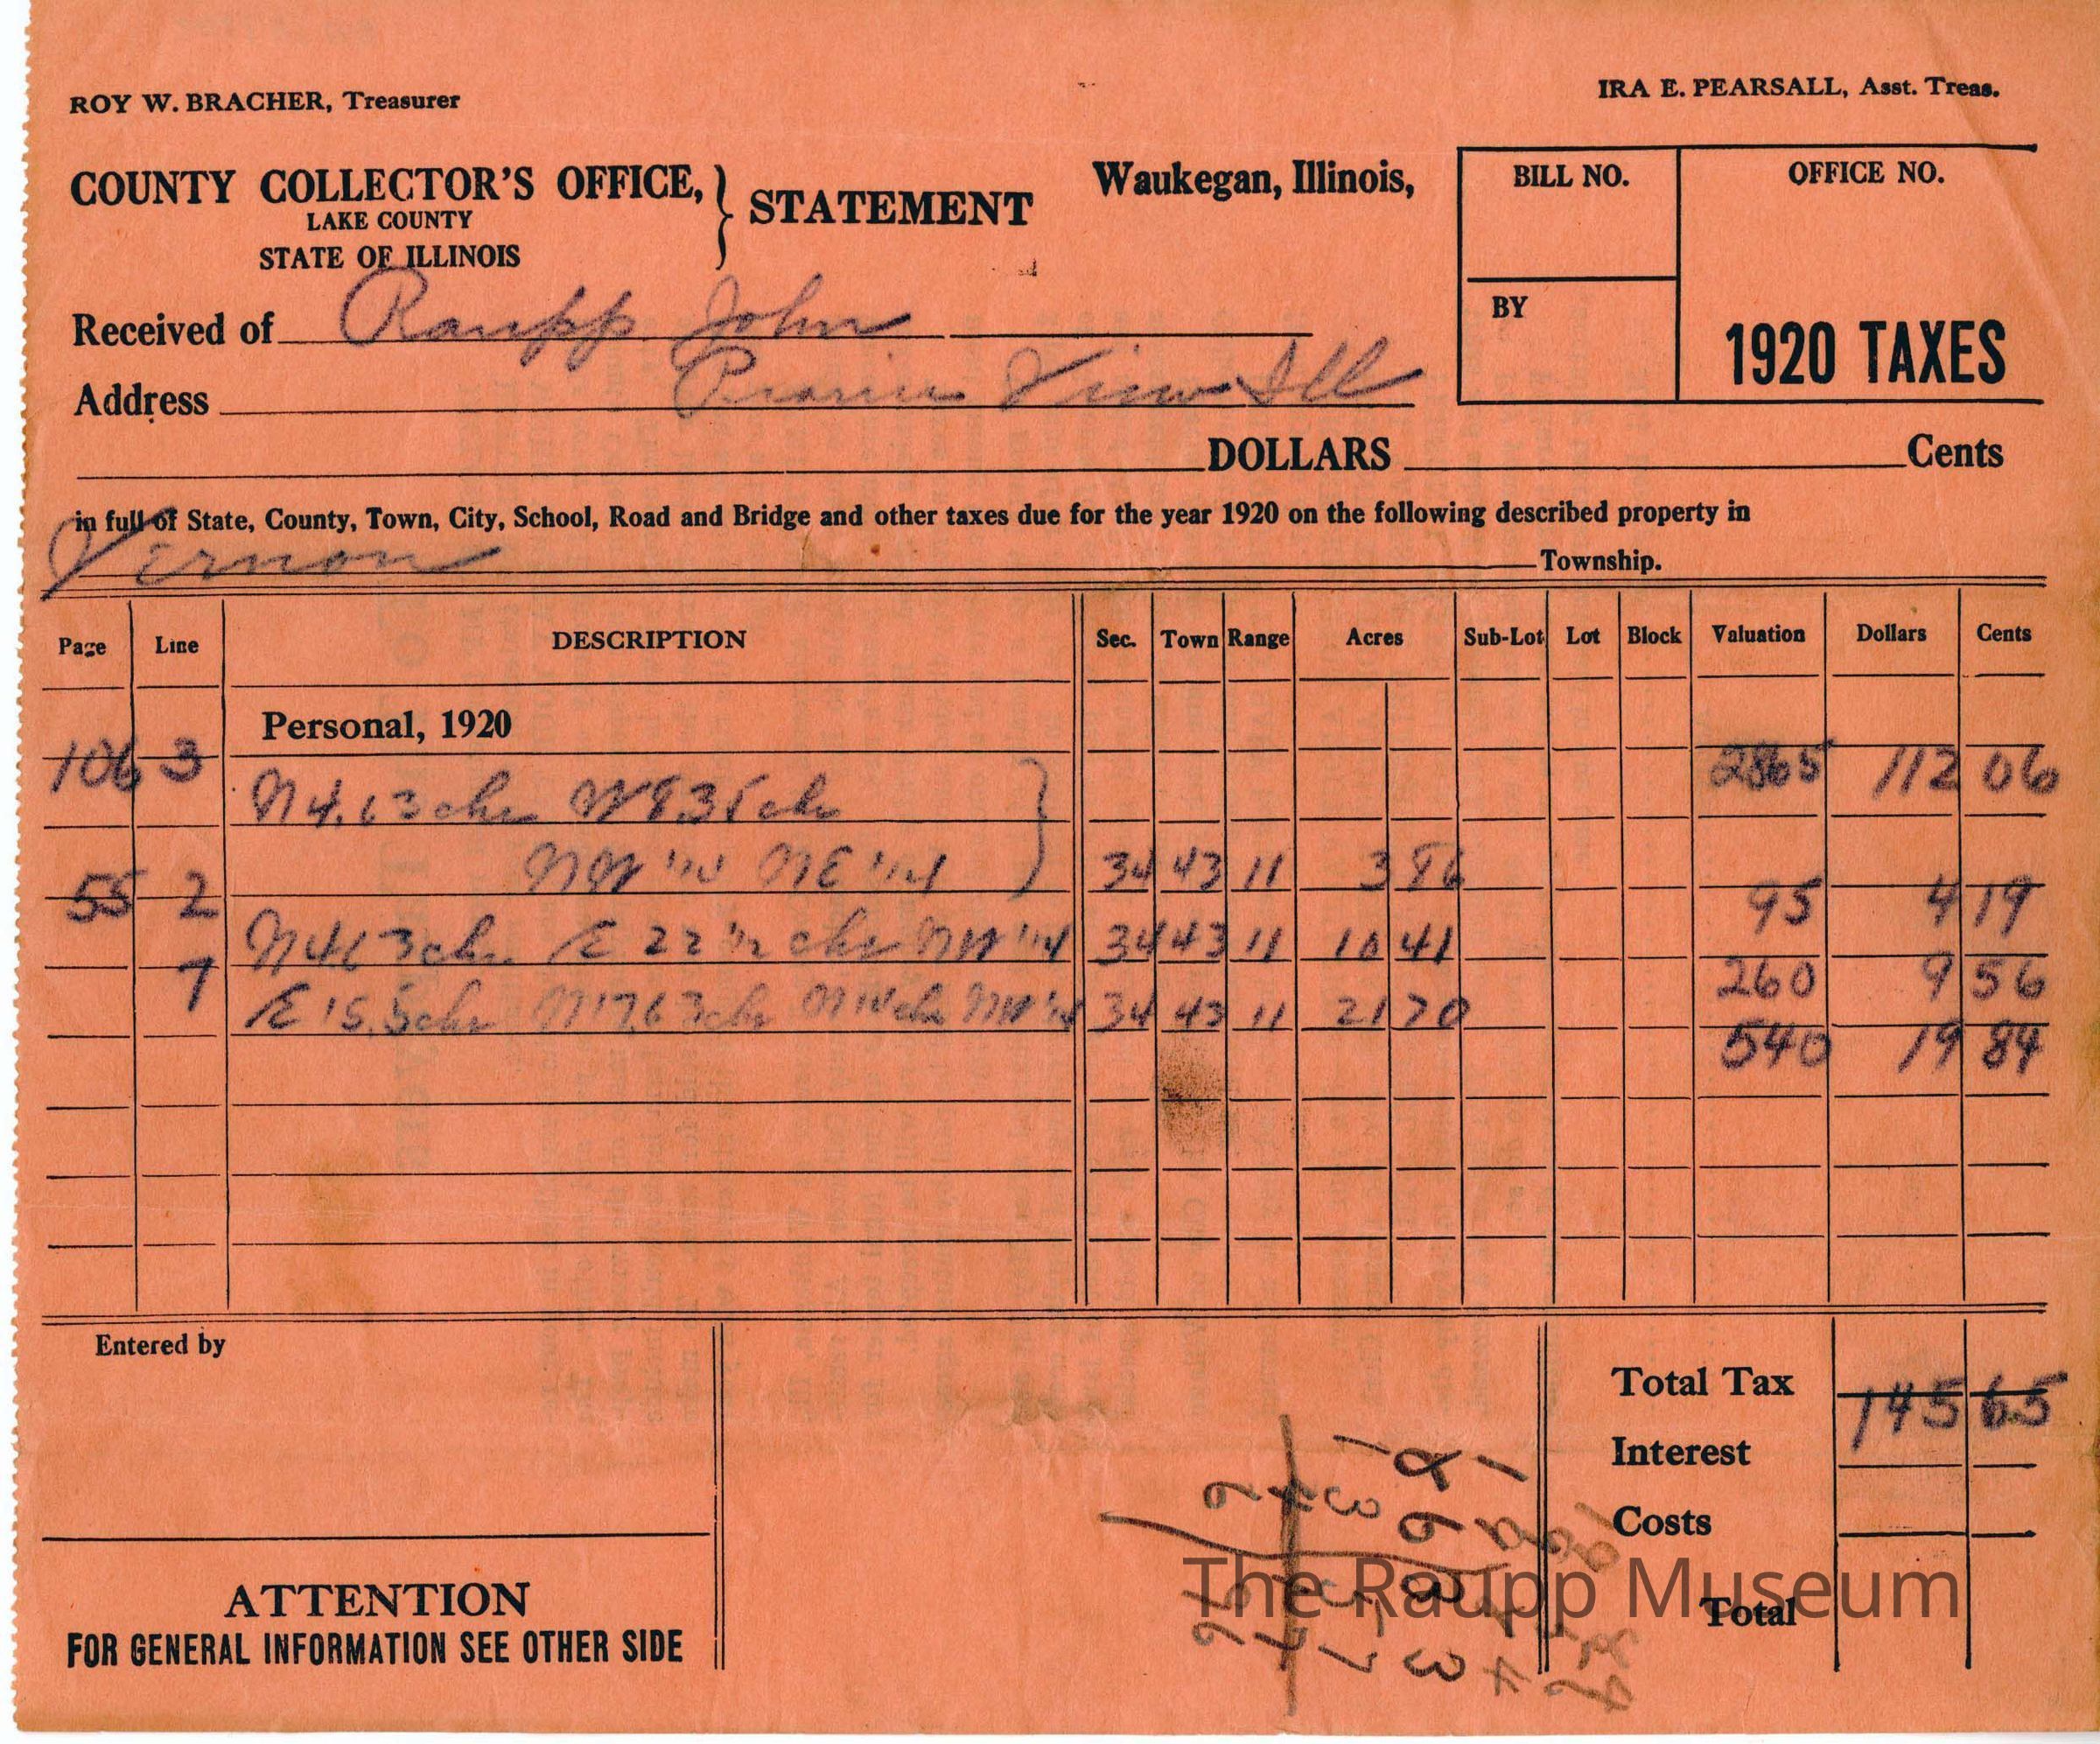 ROY W. BRACHER, Treasurer
IRA E. PEARSALL, Asst. Treas.
COUNTY COLLECTOR'S OFFICE, } STATEMENT Waukegan, Illinois,
LAKE COUNTY
STATE OF ILLINOIS
BILL NO. OFFICE NO.
BY 1920 TAXES
Received of Raupp John
Address Prairie View Ill
DOLLARS Cents
in full of State, County, Town, City, School, Road and Bridge and other taxes due for the year 1920 on the following described property in
Vernon Township.
Page Line DESCRIPTION Sec. Town Range Acres Sub-Lot Lot Block Valuation Dollars Cents
Personal, 1920
106 3 2865 112 06
N 4.63 chs W 8.35 chs }
NW 1/4 NE 1/4 34 43 11 3 86
55 2 95 4 19
N 4.63 chs. E 22 1/2 chs NW 1/4 34 43 11 10 41
7 260 9 56
E 15.5 chs N 17.63 chs NW 1/4 34 43 11 21 70
540 19 84
Entered by
Total Tax 145 65
Interest
Costs
Total
ATTENTION
FOR GENERAL INFORMATION SEE OTHER SIDE
The Raupp Museum